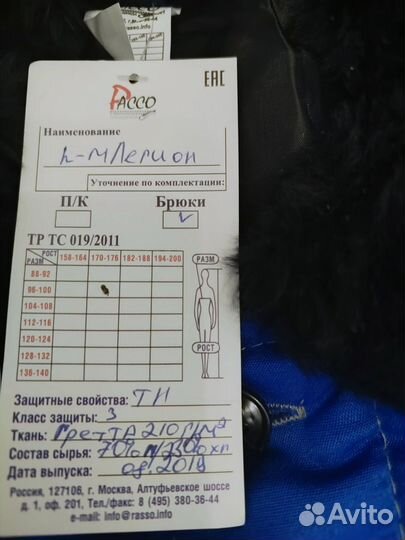 rasso.info
ЕАС
РАССО
Наименование
к-м Легион
Уточнение по комплектации:
П/К Брюки
ТР ТС 019/2011
РОСТ РАЗМ 158-164 170-176 182-188 194-200
88-92
96-100
104-108
112-116
120-124
128-132
136-140
РАЗМ
РОСТ
Защитные свойства: ТН
Класс защиты: 3
Ткань: Грета 210 г/м²
Состав сырья: 70%
Дата выпуска:
Россия, 127106, г. Москва, Алтуфьевское шоссе
д. 1, оф. 201, Тел./факс: 8 (495) 380-36-44
e-mail: info@rasso.info
Avito